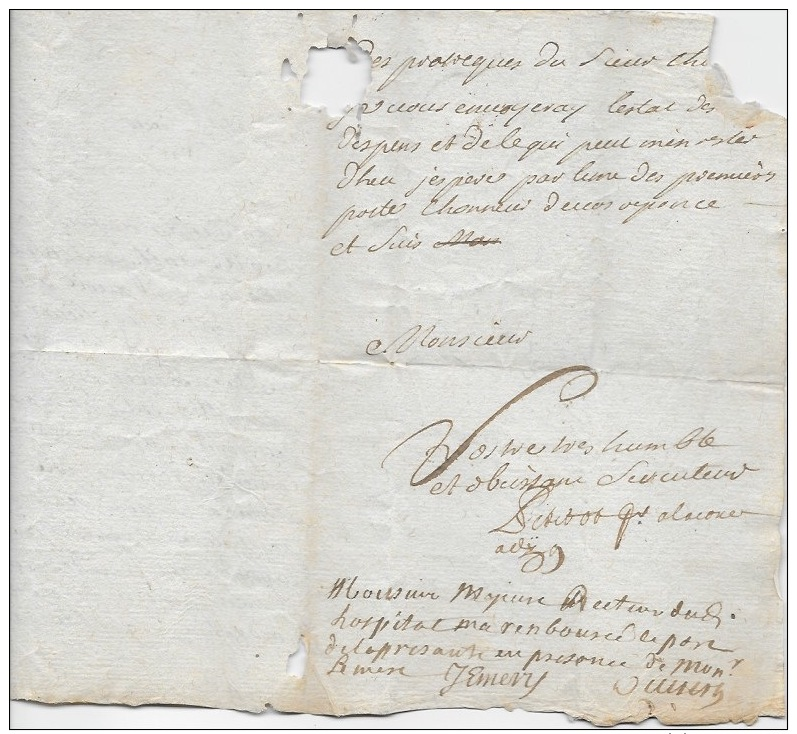 des proveques du sieur
je vous envoyeray lestat des
despens et dele qui peut men rester
dheu jespere par lune des premiers
poste lhonneur de vos reponce
et suis Mon
Monsieur
Vostre tres humble
et obeissant serviteur
Monsieur Majeure Recteur dudi.
hospital ma renboursé le port
de la presante en presance de Monr
Emery JEmery